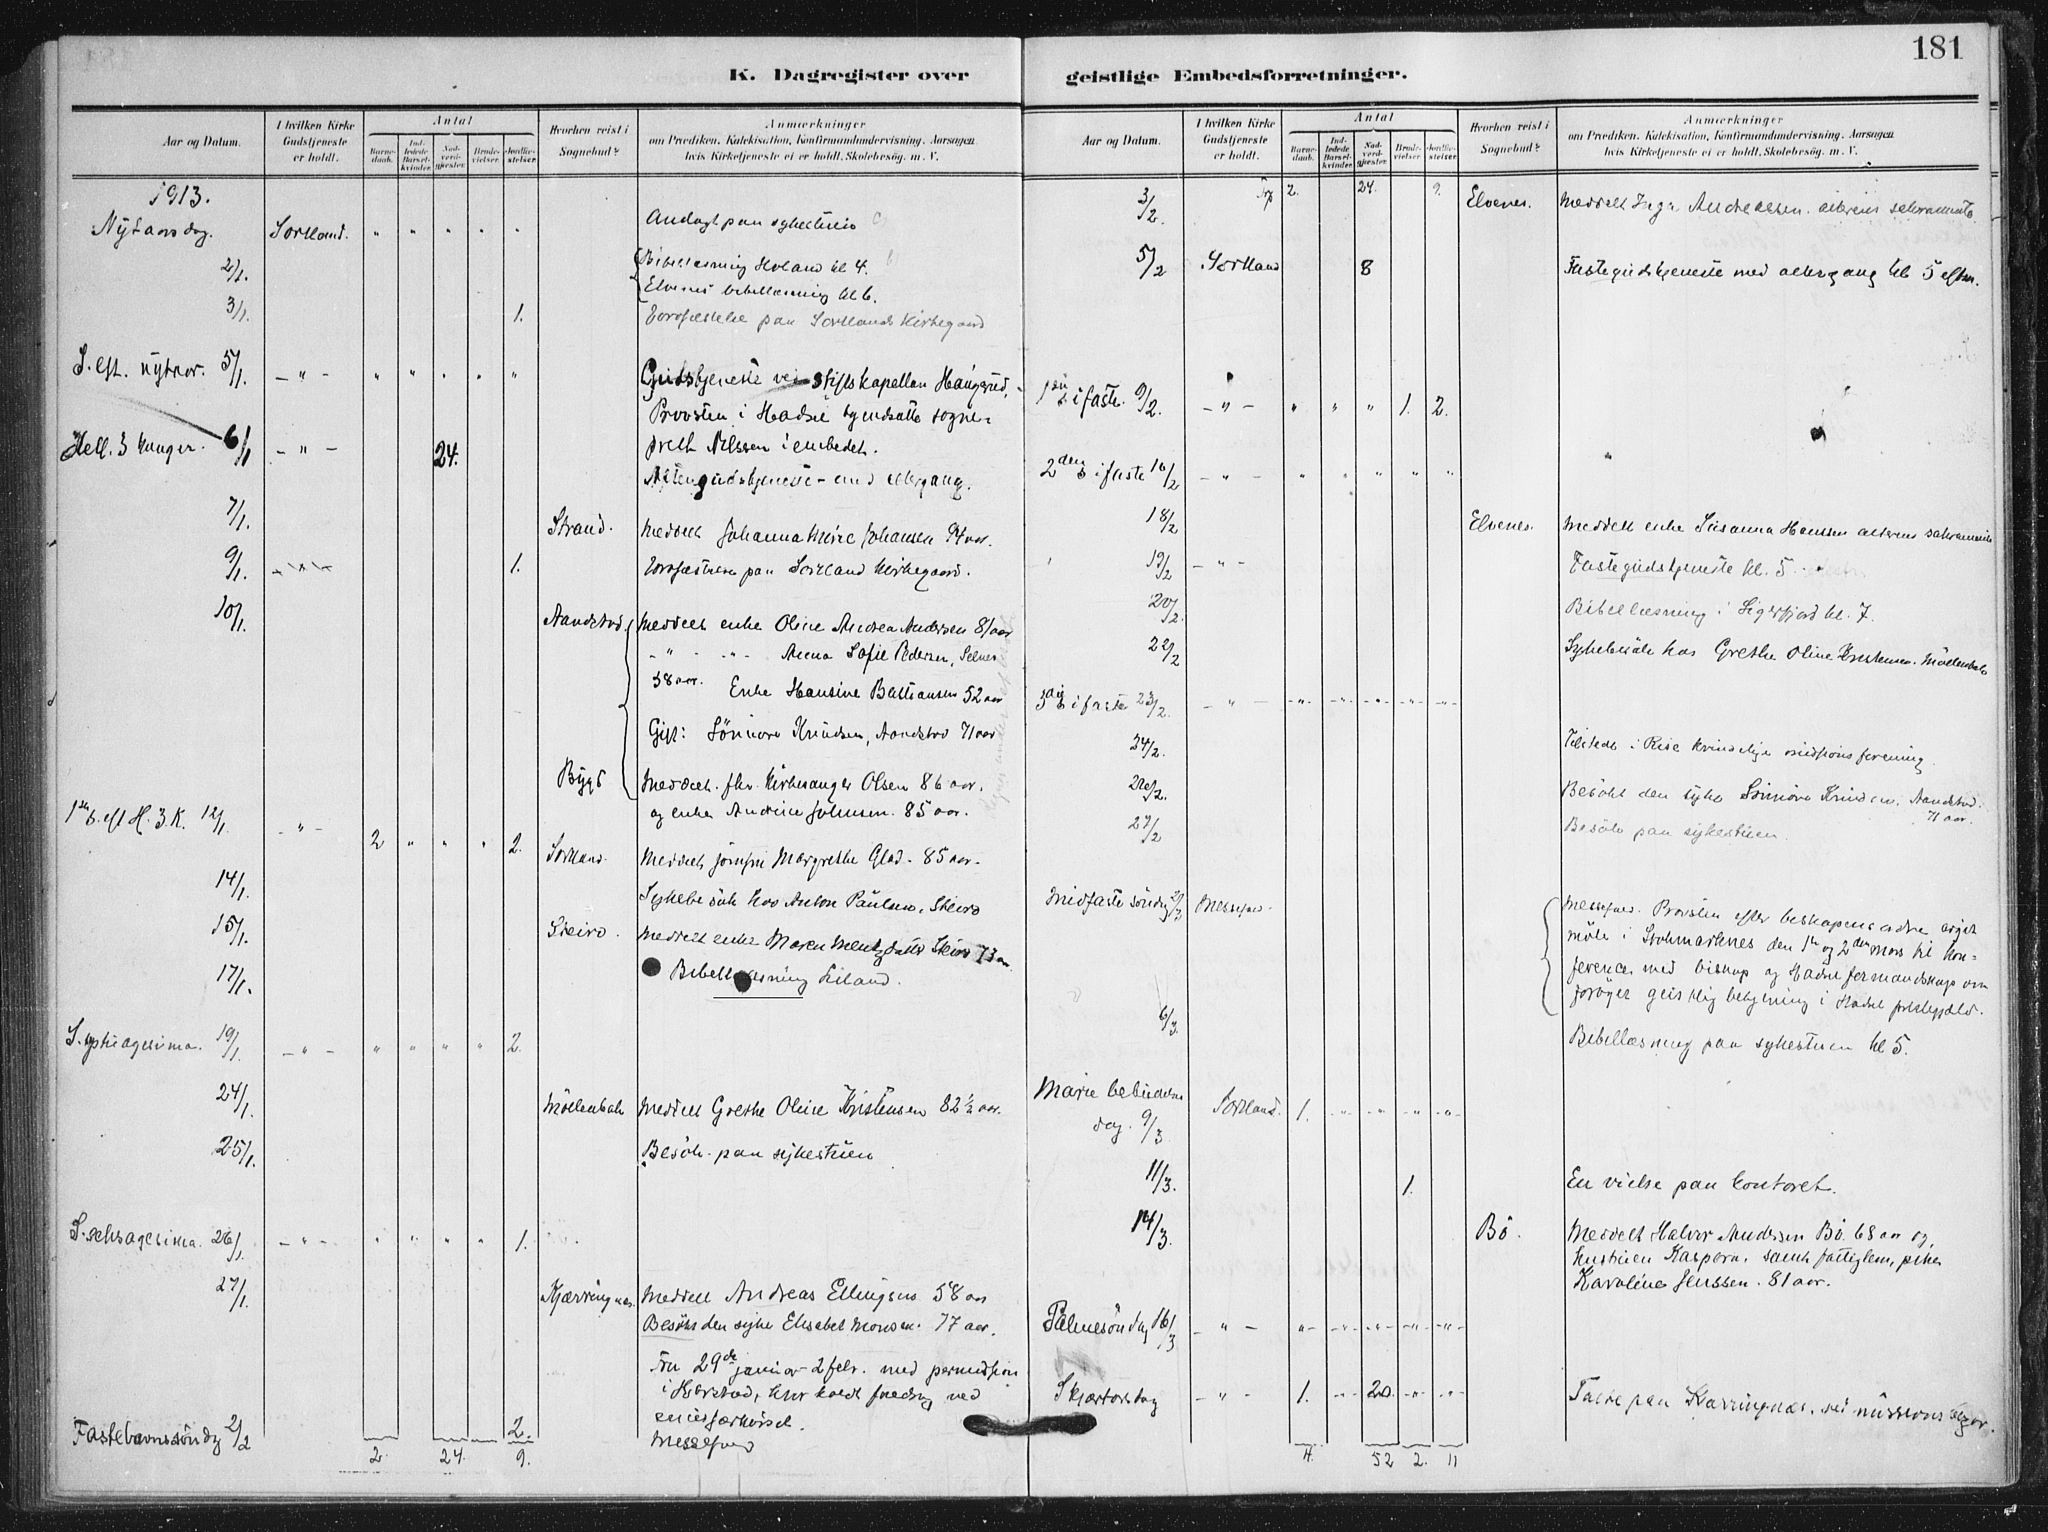 181
K. Dagregister over
geistlige Embedsforretninger.
Aar og Datum.
I hvilken Kirke
Gudstjeneste
er holdt.
Antal
Barne-
daab.
Ind-
ledede
Barsel-
kvinder.
Nad-
verd-
gjester.
Brude-
vielser.
Jordfæ-
stelser.
Hvorhen reist i
Sognebud?
Anmærkninger
om Prædiken, Katekisation, Konfirmandundervisning. Aarsagen
hvis Kirketjeneste ei er holdt. Skolebesøg. m. V.
1913.
Nytaarsdag. Sortland. " " " " " Andagt paa sykestuen
2/1. Bibellæsning Holand kl 4.
Elvenes bibellæsning kl 6.
3/1. 1. Jordfæstelse paa Sortlands Kirkegaard
S. eft. nytaar. 5/1. - " - " " " " " Gudstjeneste ved stiftskapellan Haugsrud,
Provsten i Hadsel indsatte sogne-
prest Nilssen i embedet.
Hell. 3 konger. 6/1 - " - 24.
Aftengudstjeneste med altergang.
7/1. Strand. Meddelt Johanna Johansen 94 aar.
9/1. - " - 1. Jordfæstelse paa Sortland Kirkegaard.
10/1. Aandstad. Meddelt enke Oline Andrea Andersen 81 aar
- " - - " - Anna Sofie Pedersen, Selnes
58 aar. Enke Hansine Bastiansen 52 aar
Gift: Synnøve Knudsen, Aandstad 71 aar
Bygd Meddelt fhv. Kirkesanger Olsen 86 aar.
og enke Andrine Johnsen. 85 aar.
1ste S. eft H. 3. K. 12/1. - " - 2 " " " 2.
Sortland. Meddelt jomfru Margrethe Glad. 85 aar.
14/1. Sykebesøk hos Anton Paulsen, Steiro
15/1. Steiro. Meddelt enke Maren Steiro 73 aar
17/1. Bibellæsning Liland.
S. septuagesima. 19/1. - " - " " " " 2.
24/1. Möllenbak Meddelt Grethe Oline Kristensen 82 ½ aar.
25/1. Besök paa sykestuen
S. seksagesima. 26/1. - " - " " " " 1.
27/1. Kjærringnæs. Meddelt Andreas Ellingsen 58 aar
Besökt den syke Elisabet Monsen. 77 aar.
Fra 29de januar - 2 febr. med permission
i Harstad, hvor holdt foredrag ved
Fastelavnssöndag 2/2 2.
Messefald
2. 24. 9.
Aar og Datum.
I hvilken Kirke
Gudstjeneste
er holdt.
Antal
Barne-
daab.
Ind-
ledede
Barsel-
kvinder.
Nad-
verd-
gjester.
Brude-
vielser.
Jordfæ-
stelser.
Hvorhen reist i
Sognebud?
Anmærkninger
om Prædiken, Katekisation, Konfirmandundervisning. Aarsagen
hvis Kirketjeneste ei er holdt. Skolebesøg. m. V.
2. 24. 9.
3/2. Elvenes. Meddelt Inga Andreassen. alterens sakramente.
5/2 Sortland 8 Fastegudstjeneste med altergang kl 5 efterm.
1ste S. i faste. 9/2. - " - " " " 1. 2.
2den S. i faste 16/2 - " - " " " " "
18/2 Elvenes. Meddelt enke Susanna Hanssen alterens sakramente
19/2 - " - Fastegudstjeneste kl. 5.
20/2. Bibellæsning i Sigerfjord kl. 7.
22/2 Sykebesök hos Grethe Oline Kristensen. Möllenbak
3die S. i faste 23/2. - " - - " - - " - - " - - " - - " -
24/2. Tilstede i Rise kvindelige missions forening.
26/2. Besökt den syke Synnöve Knudsen, Aandstad.
71 aar.
27/2 Besök paa sykestuen.
Midfaste söndag 2/3 Messefald. Messefald. Provsten efter biskopens ordre avgik
möte i Stokmarknes den 1ste og 2den mars til kon-
ference med biskop og Hadsel formandskap om
foröget geistlig betjening i Hadsel prestegjeld.
6/3. Bibellæsning paa sykestuen kl 5.
Marie bebudelses
dag. 9/3 Sortland. 1. - " - - " - - " - - " -
11/3. 1. En vielse paa kontoret.
14/3. Bö. Meddelt Halvor Andersen Bö. 68 aar og
hustruen Kaspara. samt fattiglem, pike
Karoline Jenssen. 81 aar.
Palmesöndag 16/3 - " - - " - - " - - " - - " - - " -
Skjærtorsdag - " - 1. - " - 20. - " - - " - Tale paa Kjærringnæs. ved missions
4. 52 2. 11